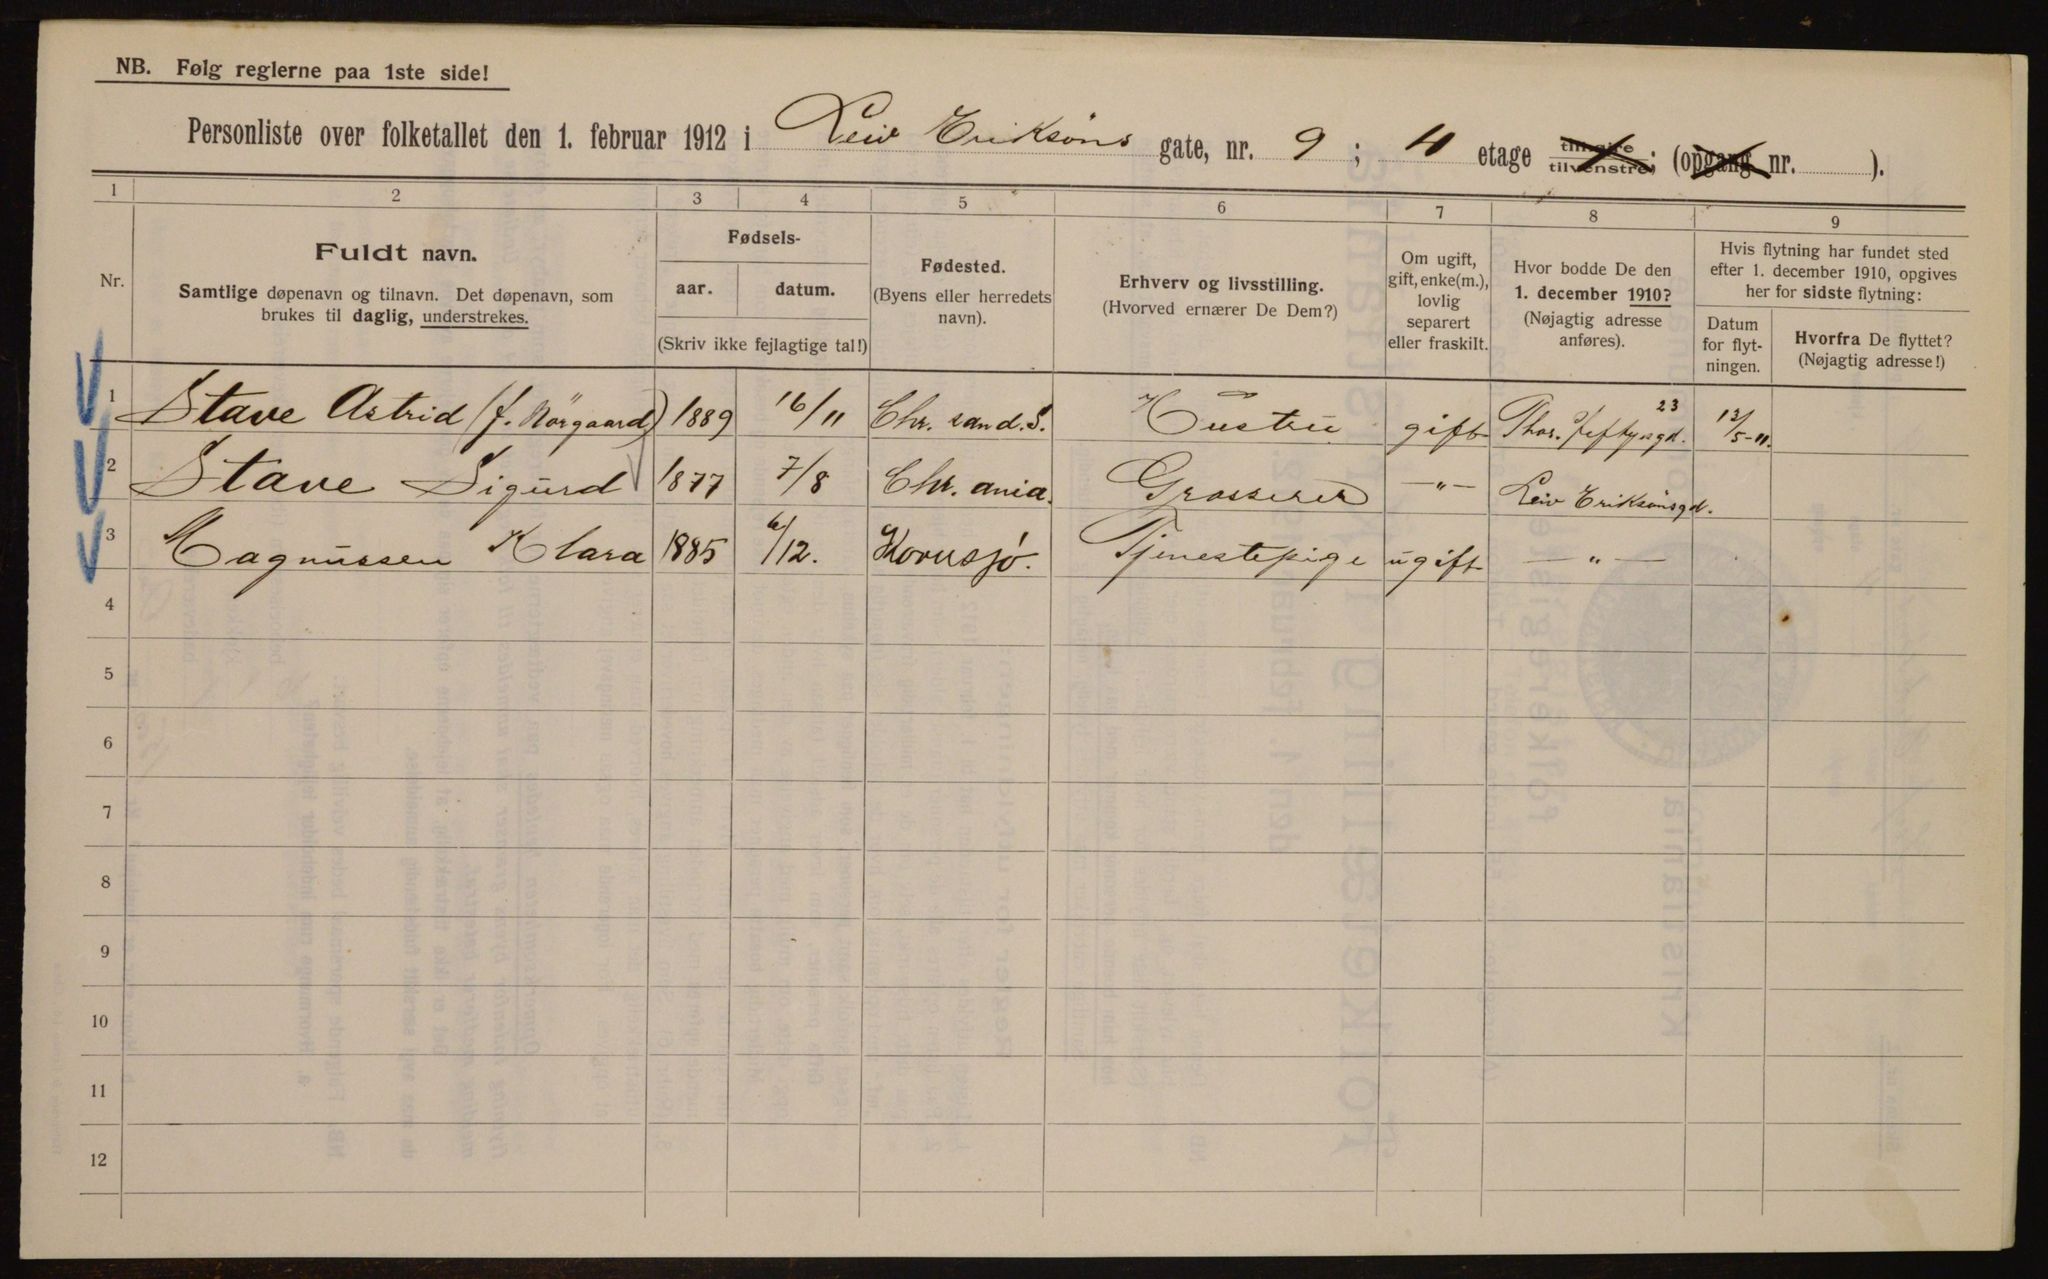 NB. Følg reglerne paa 1ste side!
Personliste over folketallet den 1. februar 1912 i Leiv Eriksöns gate, nr. 9; 4 etage tilhøire tilvenstre; (opgang nr. ).
1 2 3 4 5 6 7 8 9
Nr.
Fuldt navn.
Samtlige døpenavn og tilnavn. Det døpenavn, som
brukes til daglig, understrekes.
Fødsels-
aar. datum.
(Skriv ikke fejlagtige tal!)
Fødested.
(Byens eller herredets
navn).
Erhverv og livsstilling.
(Hvorved ernærer De Dem?)
Om ugift,
gift, enke(m.),
lovlig
separert
eller fraskilt.
Hvor bodde De den
1. december 1910?
(Nøjagtig adresse
anføres).
Hvis flytning har fundet sted
efter 1. december 1910, opgives
her for sidste flytning:
Datum
for flyt-
ningen.
Hvorfra De flyttet?
(Nøjagtig adresse!)
1 Stave Astrid (f. Nörgaard) 1889 16/11 Chr. sand. S. Hustru gift Thor. Jeftysgd. 23 13/5-11.
2 Stave Sigurd 1877 7/8 Chr. ania. Grosserer —"— Leiv Eriksönsgd.
3 Magnussen Klara 1885 6/12. Kornsjø. Tjenestepige ugift —"—
4
5
6
7
8
9
10
11
12